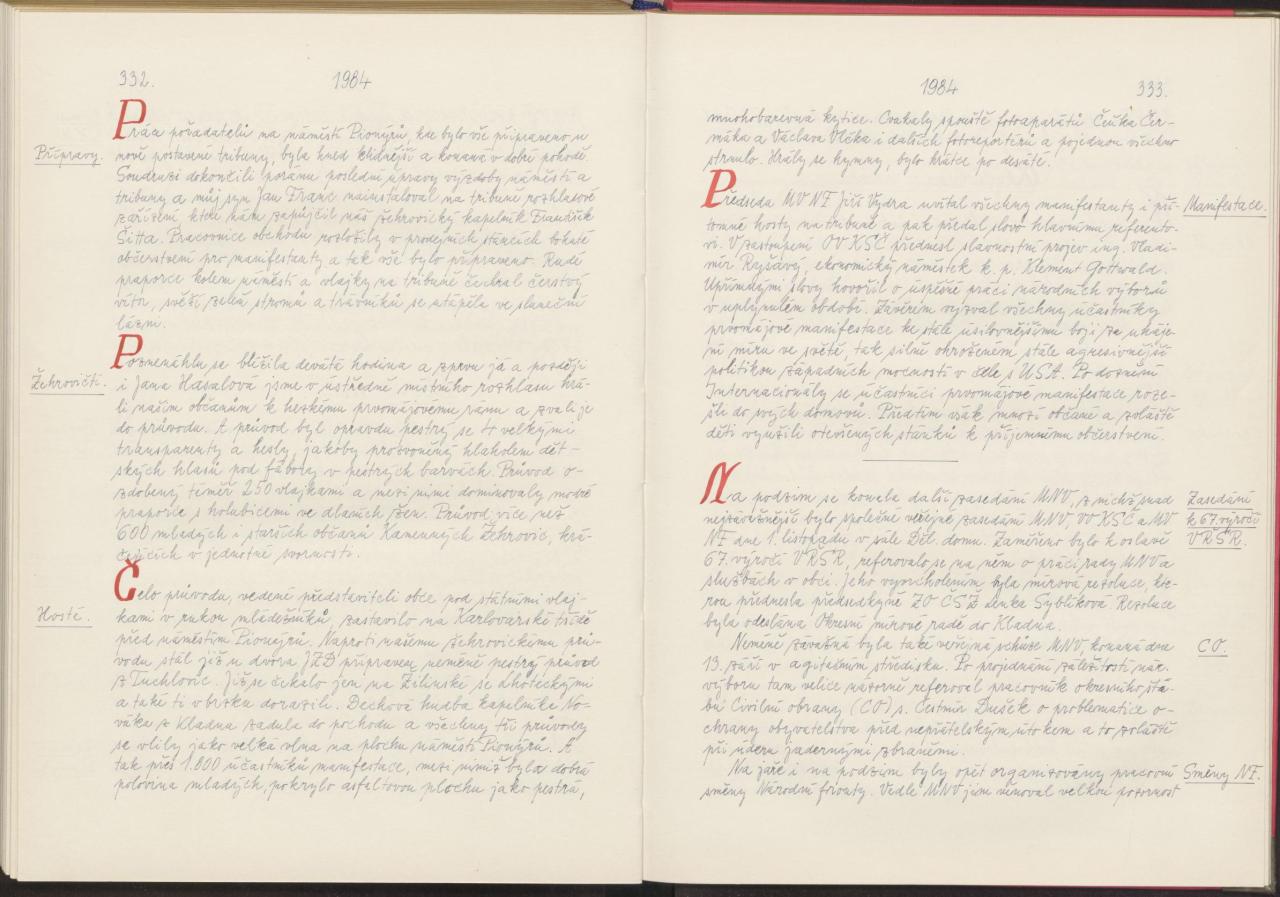 332. 1984
Práce pořadatelů na náměstí Pionýrů, kde bylo vše připraveno u
Přípravy.
nově postavené tribuny, byla hned klidnější a konaná v dobré pohodě.
Soudruzi dokončili poránu poslední úpravy výzdoby náměstí a
tribuny a můj syn Jan Franc nainstaloval na tribuně rozhlasové
zařízení které nám zapůjčil náš žehrovický kapelník František
Šitta. Pracovnice obchodu rozložily v prodejních stáncích bohaté
občerstvení pro manifestanty a tak vše bylo připraveno. Rudé
praporce kolem náměstí a vlajky na tribuně čechral čerstvý
vítr, svěží zeleň stromů a trávníků se utápěla ve sluneční
lázni.
Poznenáhlu se blížila devátá hodina a zprvu já a později
Žehrovičtí.
i Jana Hasalová jsme v ústředně místního rozhlasu hrá-
li našim občanům k hezkému prvomájovému ránu a zvali je
do průvodu. A průvod byl opravdu pestrý se 4 velkými
transparenty a hesly, jakoby prozvoněný hlaholem dět-
ských hlasů pod fábory v pestrých barvách. Průvod o-
zdobený téměř 250 vlajkami a mezi nimi dominovaly modré
praporce s holubicemi ve dlaních žen. Průvod více než
600 mladých i starších občanů Kamenných Žehrovic, krá-
čejících v jednotné svornosti.
Čelo průvodu, vedené představiteli obce pod státními vlaj-
Hosté.
kami v rukou mládežníků, zastavilo na Karlovarské třídě
před náměstím Pionýrů. Naproti našemu žehrovickému prů-
vodu stál již u dvora JZD připraven neméně pestrý průvod
z Tuchlovic. Již se čekalo jen na Žilinské se Lhoteckými
a také ti v brzku dorazili. Dechová hudba kapelníka No-
váka z Kladna zadula do pochodu a všechny tři průvody
se vlily jako velká vlna na plochu náměstí Pionýrů. A
tak přes 1.000 účastníků manifestace, mezi nimiž byla dobrá
polovina mladých, pokrylo asfaltovou plochu jako pestrá,
1984 333.
mnohobarevná kytice. Cvakaly spouště fotoaparátů Čeňka Čer-
máka a Václava Vlčka i dalších fotoreportérů a pojednou všechno
strnulo. Hrály se hymny, bylo krátce po desáté.
Předseda MV NF Jiří Vydra uvítal všechny manifestanty i pří-
Manifestace.
tomné hosty na tribuně a pak předal slovo hlavnímu referento-
vi. V zastoupení OV KSČ přednesl slavnostní projev ing. Vladi-
mír Ryšavý, ekonomický náměstek k. p. Klement Gottwald.
Upřímnými slovy hovořil o úspěšné práci národních výborů
v uplynulém období. Závěrem vyzval všechny účastníky
prvomájové manifestace ke stále úsilovnějšímu boji za uháje-
ní míru ve světě, tak silně ohroženém stále agresivnější
politikou západních mocností v čele s USA. Po doznění
Internacionály se účastníci prvomájové manifestace roze-
šli do svých domovů. Předtím však mnozí občané a zvláště
děti využili otevřených stánků k příjemnému občerstvení.
Na podzim se konala další zasedání MNV, z nichž snad
Zasedání
nejzávažnější bylo společné veřejné zasedání MNV, VO KSČ a MV
k 67. výročí
NF dne 1. listopadu v sále Děl. domu. Zaměřeno bylo k oslavě
VŘSR.
67. výročí VŘSR, referovalo se na něm o práci rady MNV a
službách v obci. Jeho vyvrcholením byla mírová rezoluce, kte-
rou přednesla předsedkyně ZO ČSŽ Lenka Syblíková. Rezoluce
byla odeslána Okresní mírové radě do Kladna.
Neméně závažná byla také veřejná schůze MNV, konaná dne
CO.
13. září v agitačním středisku. Po projednání záležitostí nár.
výboru tam velice názorně referoval pracovník okresního štá-
bu Civilní obrany (CO) s. Čestmír Dušek o problematice o-
chrany obyvatelstva před nepřátelským útokem a to zvláště
při úderu jadernými zbraněmi.
Na jaře i na podzim byly opět organizovány pracovní
Směny NF.
směny Národní fronty. Vedle MNV jim věnoval velkou pozornost